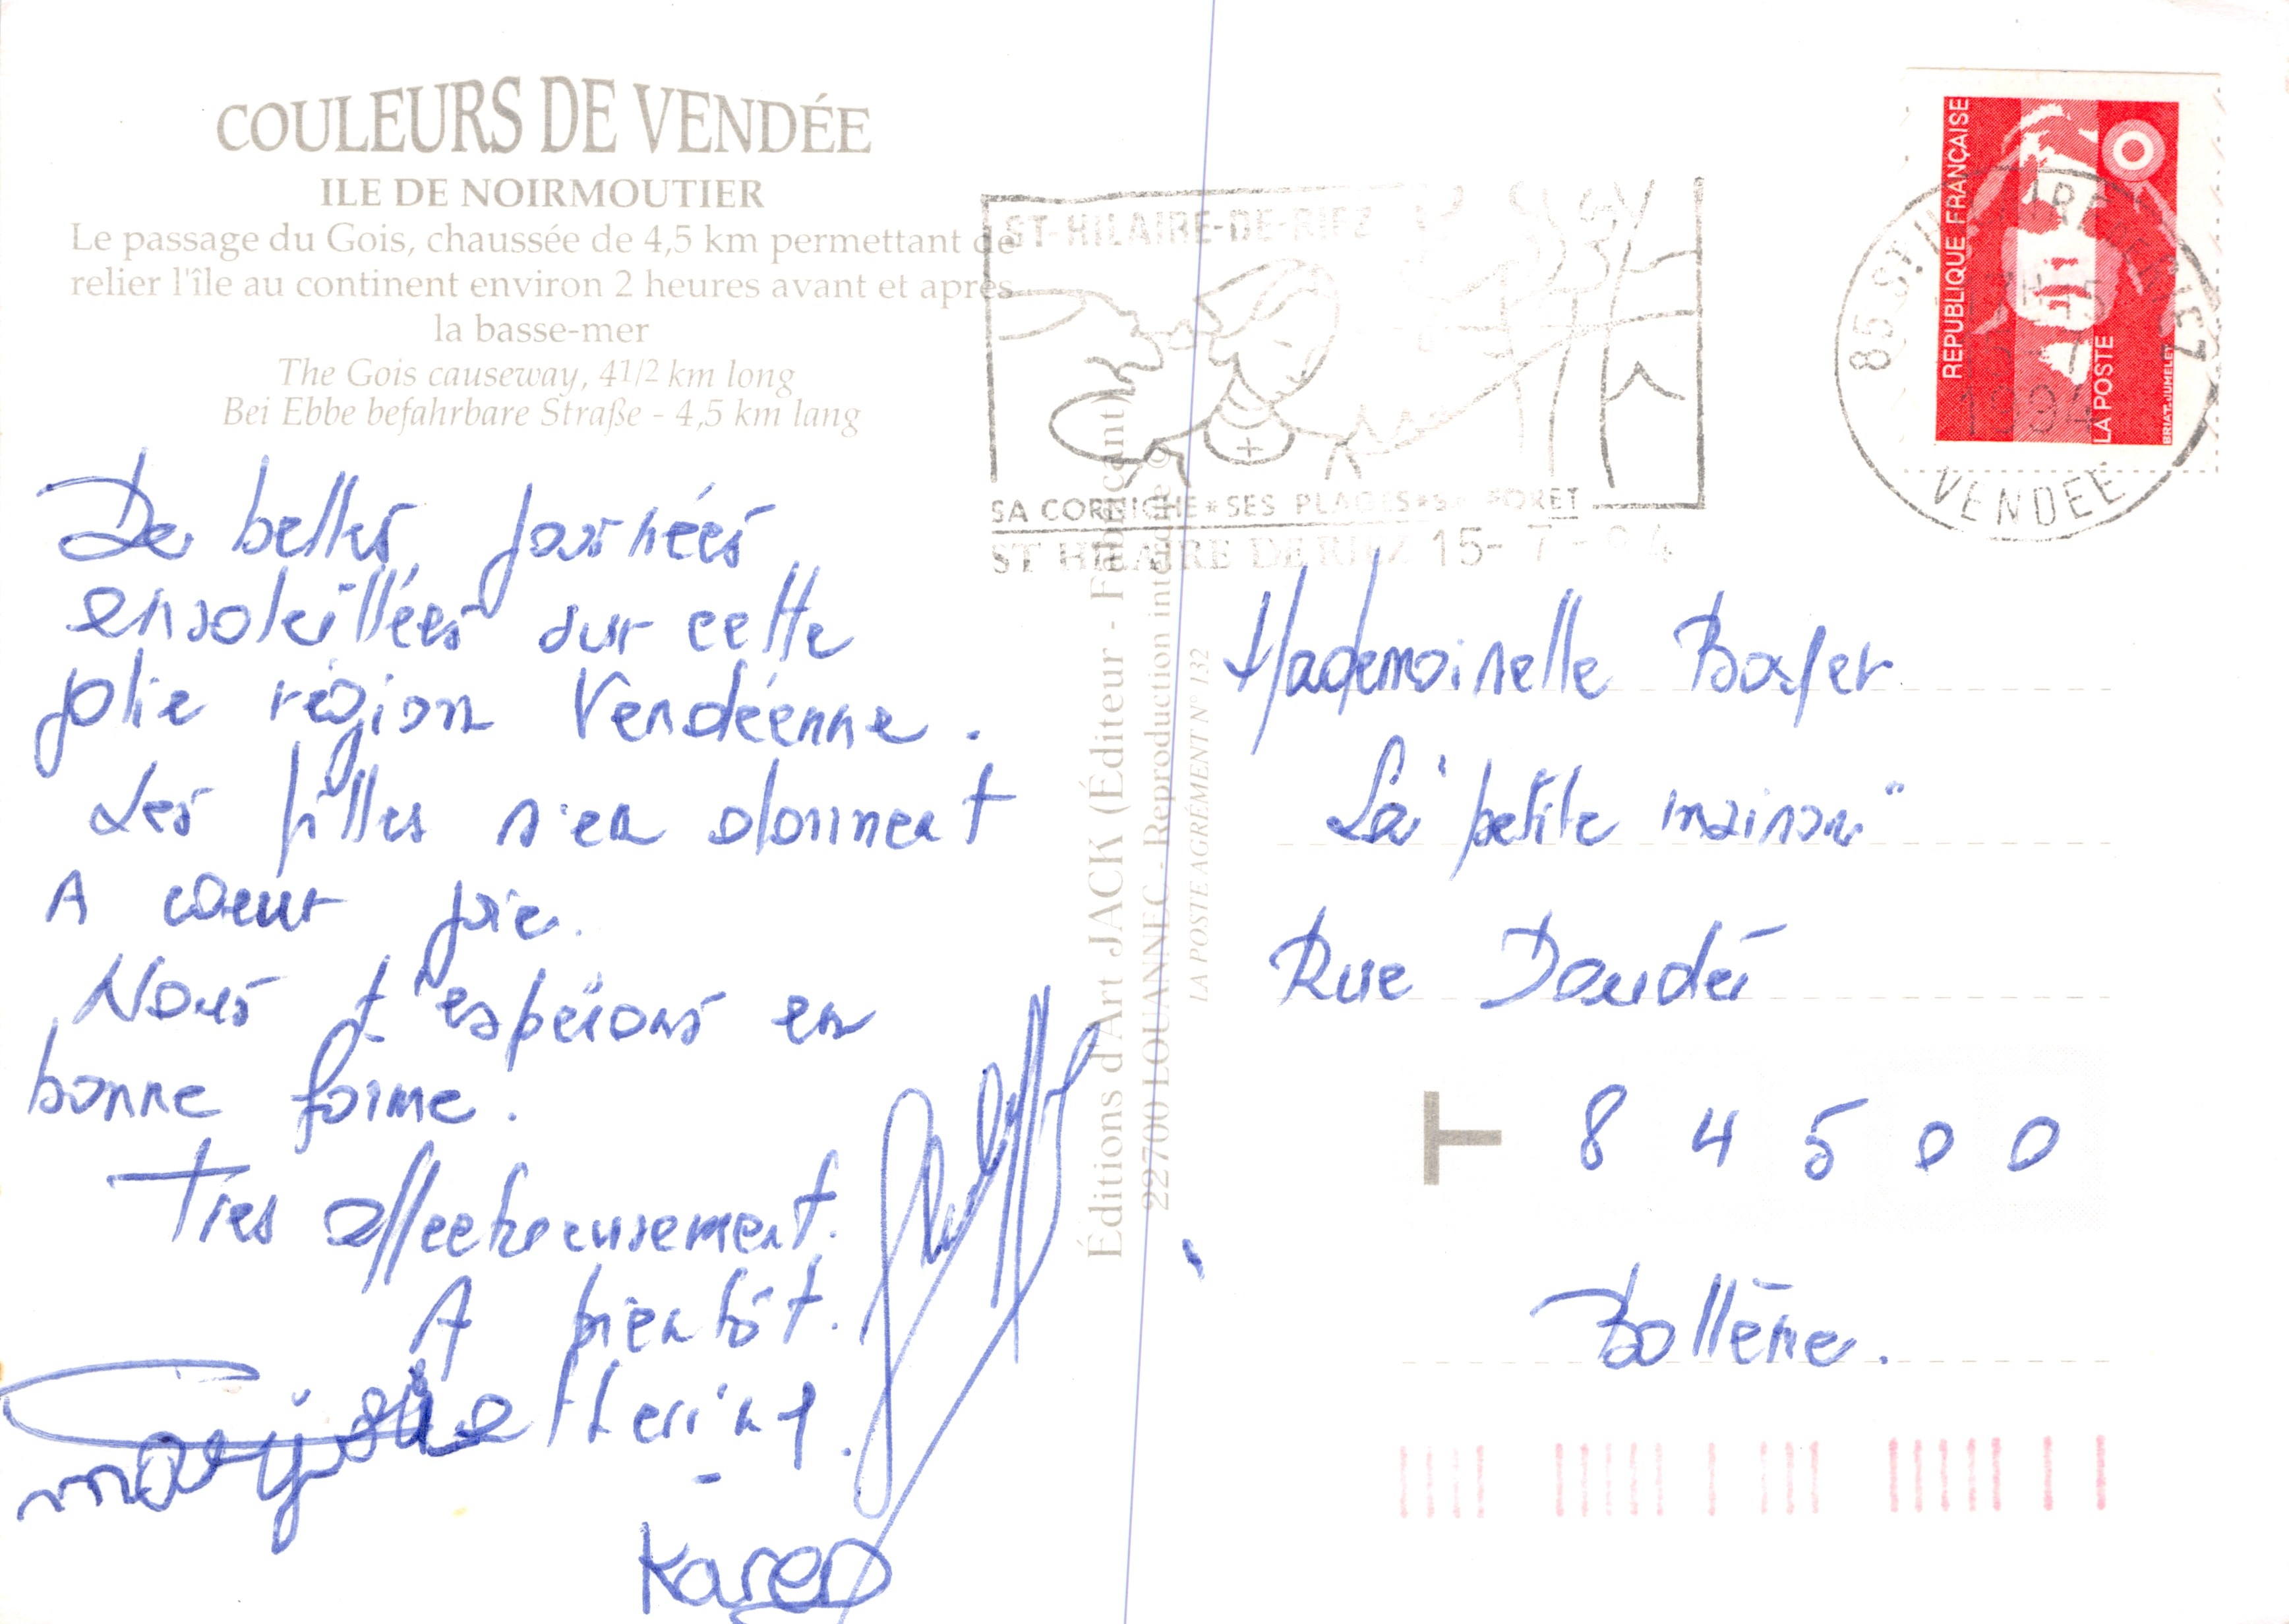 COULEURS DE VENDÉE
ILE DE NOIRMOUTIER
Le passage du Gois, chaussée de 4,5 km permettant de
relier l'île au continent environ 2 heures avant et après
la basse-mer
The Gois causeway, 41/2 km long
Bei Ebbe befahrbare Straße - 4,5 km lang
De belles journées
ensoleillées sur cette
jolie région Vendéenne.
Les filles s'en donnent
A coeur joie.
Nous t'espérons en
bonne forme.
Très affectueusement.
A bientôt.
Catherine
Karen
Éditions d'Art JACK (Éditeur - Fabricant)
22700 LOUANNEC - Reproduction interdite
LA POSTE AGRÉMENT N° 132
ST-HILAIRE-DE-RIEZ
SA CORNICHE * SES PLAGES * SA FORET
ST HILAIRE DE RIEZ 15-7-94
REPUBLIQUE FRANÇAISE
LA POSTE
BRIAT-JUMELET
85 ST HILAIRE DE RIEZ
VENDEE
Mademoiselle
La "petite maison"
Rue Daudet
84500
Bollène.